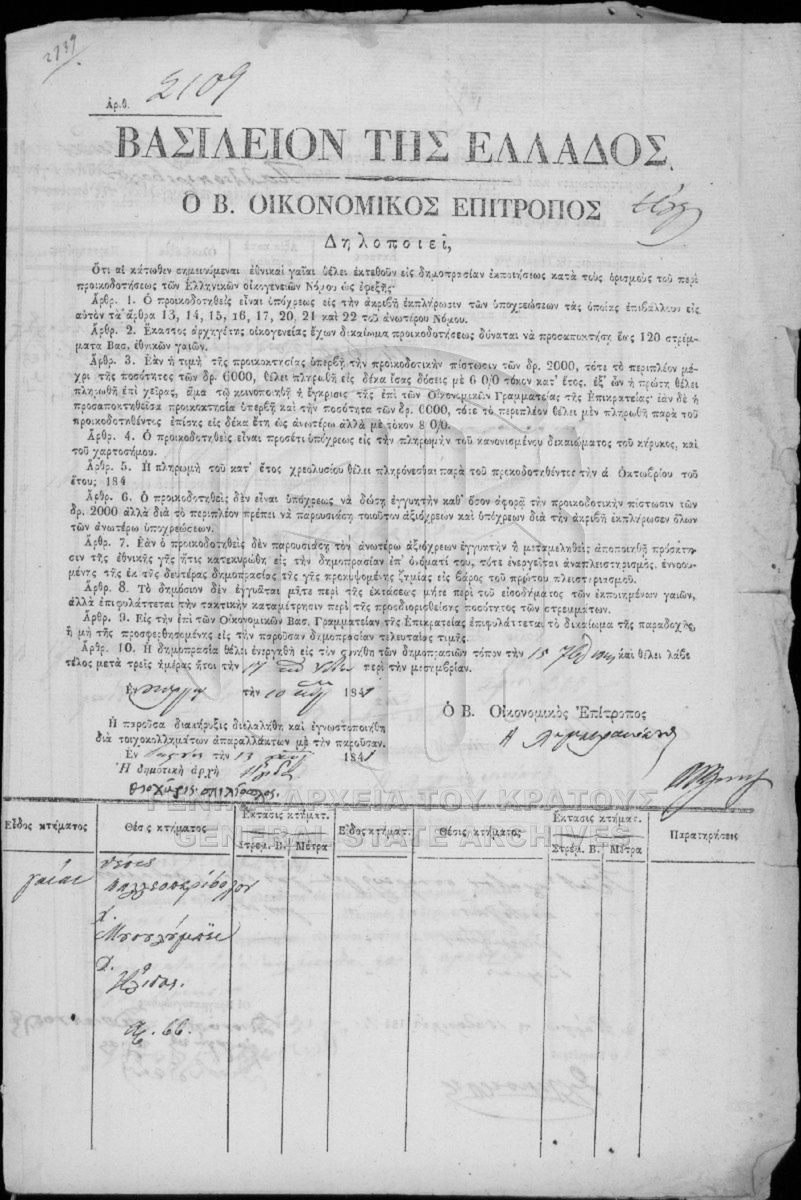 2739
Ἀριθ. 2109
ΒΑΣΙΛΕΙΟΝ ΤΗΣ ΕΛΛΑΔΟΣ.
Ο Β. ΟΙΚΟΝΟΜΙΚΟΣ ΕΠΙΤΡΟΠΟΣ
Δηλοποιεῖ,
Ὅτι αἱ κάτωθεν σημειούμεναι ἐθνικαὶ γαῖαι θέλει ἐκτεθοῦν εἰς δημοπρασίαν ἐκποιήσεως κατὰ τοὺς ὁρισμοὺς τοῦ περὶ
προικοδοτήσεως τῶν Ἑλληνικῶν οἰκογενειῶν Νόμου ὡς ἐφεξῆς·
Ἄρθρ. 1. Ὁ προικοδοτηθεὶς εἶναι ὑπόχρεως εἰς τὴν ἀκριβῆ ἐκπλήρωσιν τῶν ὑποχρεώσεων τὰς ὁποίας ἐπιβάλλουν εἰς
αὐτὸν τὰ ἄρθρα 13, 14, 15, 16, 17, 20, 21 καὶ 22 τοῦ ἀνωτέρου Νόμου.
Ἄρθρ. 2. Ἕκαστος ἀρχηγέτης οἰκογενείας ἔχων δικαίωμα προικοδοτήσεως δύναται νὰ προσαποκτήσῃ ἕως 120 στρέμ-
ματα Βασ. ἐθνικῶν γαιῶν.
Ἄρθρ. 3. Ἐὰν ἡ τιμὴ τῆς προικοκτησίας ὑπερβῇ τὴν προικοδοτικὴν πίστωσιν τῶν δρ. 2000, τότε τὸ περιπλέον μέ-
χρι τῆς ποσότητες τῶν δρ. 6000, θέλει πληρωθῆ εἰς δέκα ἴσας δόσεις μὲ 6 0/0 τόκον κατ' ἔτος, ἐξ' ὧν ἡ πρώτη θέλει
πληρωθῆ ἐπὶ χεῖρας, ἅμα τῷ κοινοποιηθῇ ἡ ἔγκρισις τῆς ἐπὶ τῶν Οἰκονομικῶν Γραμματείας τῆς Ἐπικρατείας· ἐὰν δὲ ἡ
προσαποκτηθεῖσα προικοκτησία ὑπερβῇ καὶ τὴν ποσότητα τῶν δρ. 6000, τότε τὸ περιπλέον θέλει μὲν πληρωθῆ παρὰ τοῦ
προικοδοτηθέντος ἐπίσης εἰς δέκα ἔτη ὡς ἀνωτέρω ἀλλὰ μὲ τόκον 8 0/0.
Ἄρθρ. 4. Ὁ προικοδοτηθεὶς εἶναι προσέτι ὑπόχρεως εἰς τὴν πληρωμὴν τοῦ κανονισμένου δικαιώματος τοῦ κήρυκος, καὶ
τοῦ χαρτοσήμου.
Ἄρθρ. 5. Ἡ πληρωμὴ τοῦ κατ' ἔτος χρεολυσίου θέλει πληρόνεσθαι παρὰ τοῦ προκοδοτηθέντος τὴν ά. Ὀκτωβρίου τοῦ
ἔτους 184
Ἄρθρ. 6. Ὁ προικοδοτηθεὶς δὲν εἶναι ὑπόχρεως νὰ δώσῃ ἐγγυητὴν καθ' ὅσον ἀφορᾷ τὴν προικοδοτικὴν πίστωσιν τῶν
δρ. 2000 ἀλλὰ διὰ τὸ περιπλέον πρέπει νὰ παρουσιάσῃ τοιοῦτον ἀξιόχρεων καὶ ὑπόχρεων διὰ τὴν ἀκριβῆ ἐκπλήρωσεν ὅλων
τῶν ἀνωτέρω ὑποχρεώσεων.
Ἄρθρ. 7. Ἐὰν ὁ προικοδοτηθεὶς δὲν παρουσιάσῃ τὸν ἀνωτέρω ἀξιόχρεων ἐγγυητὴν ἢ μεταμεληθεὶς ἀποποιηθῇ πρόσκτη-
σιν τῆς ἐθνικῆς γῆς ἥτις κατεκυρώθη εἰς τὴν δημοπρασίαν ἐπ' ὀνόματί του, τότε ἐνεργεῖται ἀναπλειστηριασμός, ἐννοου-
μένης τῆς ἐκ τῆς δευτέρας δημοπρασίας τῆς γῆς προκυψομένης ζημίας εἰς βάρος τοῦ πρώτου πλειστηριασμοῦ.
Ἄρθρ. 8. Τὸ δημόσιον δὲν ἐγγυᾶται μήτε περὶ τῆς ἐκτάσεως μήτε περὶ τοῦ εἰσοδήματος τῶν ἐκποιημένων γαιῶν,
ἀλλὰ ἐπιφυλάττεται τὴν τακτικὴν καταμέτρησιν περὶ τῆς προσδιορισθείσης ποσότητος τῶν στρεμμάτων.
Ἄρθρ. 9. Εἰς τὴν ἐπὶ τῶν Οἰκονομικῶν Βασ. Γραμματείαν τῆς Ἐπικρατείας ἐπιφυλάττεται τὸ δικαίωμα τῆς παραδοχῆς,
ἢ μὴ τῆς προσφερθησομένης εἰς τὴν παροῦσαν δημοπρασίαν τελευταίας τιμῆς.
Ἄρθρ. 10. Ἡ δημοπρασία θέλει ἐνεργηθῆ εἰς τὸν συνήθη τῶν δημοπρασιῶν τόπον τὴν 15 καὶ θέλει λάβει
τέλος μετὰ τρεῖς ἡμέρας ἤτοι τὴν 17 περὶ τὴν μεσημβρίαν.
Ἐν τὴν 10 1841
Ὁ Β. Οἰκονομικὸς Ἐπίτροπος
Ἡ παροῦσα διακήρυξις διελαλήθη καὶ ἐγνωστοποιήθη
διὰ τοιχοκολλημάτων ἀπαραλλάκτων μὲ τὴν παροῦσαν.
Ἐν τὴν 13 1841
Ἡ δημοτικὴ ἀρχὴ
ΓΕΝΙΚΑ ΑΡΧΕΙΑ ΤΟΥ ΚΡΑΤΟΥΣ
GENERAL STATE ARCHIVES
Εἶδος κτήματος Θέσις κτήματος Ἔκτασις κτήματ. Εἶδος κτήματ. Θέσις κτήματος Ἔκτασις κτήματ. Παρατηρήσεις
Στρέμ. Β. Μέτρα Στρέμ. Β. Μέτρα
γαίαι
χ.
Δ.
Ἤλιδος.
ἀρ. 66.